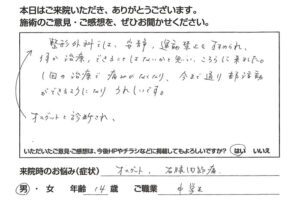 本日はご来院いただき、ありがとうございます。
施術のご意見・ご感想を、ぜひお聞かせください。
整形外科では、安静、運動禁止とすすめられ、
何か治療できることはないかと思い、こちらに来ました。
1回の治療で痛みがなくなり、今まで通り部活動
ができるようになりうれしいです。
オスグットと診断され、
いただいたご意見・ご感想は、今後HPやチラシなどに掲載してもよろしいですか? はい いいえ
来院時のお悩み(症状) オスグット、右膝
男・女 年齢 14歳 ご職業 中学生